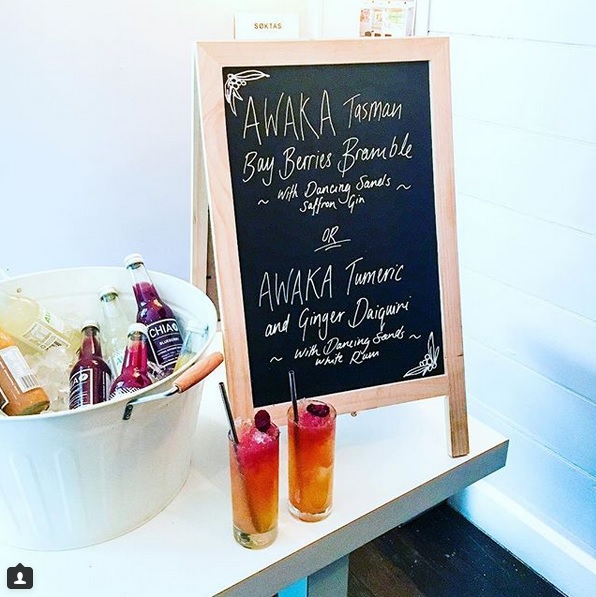 SØKTAS
AWAKA Tasman
Bay Berries Bramble
~ With Dancing Sands ~
Saffron Gin
OR
AWAKA Tumeric
and Ginger Daiquiri
~ With Dancing Sands ~
White Rum
CHIA
BLUEBERRY